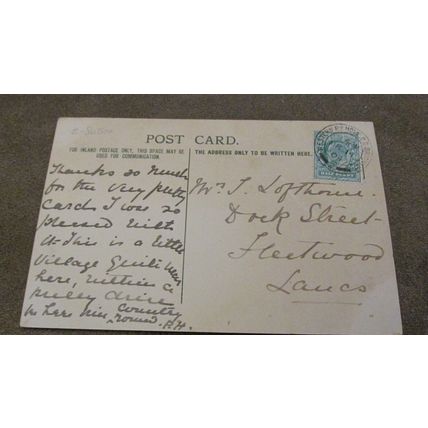 POST CARD.
FOR INLAND POSTAGE ONLY, THIS SPACE MAY BE
USED FOR COMMUNICATION.
THE ADDRESS ONLY TO BE WRITTEN HERE.
Thanks so much
for the very pretty
card I was so
pleased with
it. This is a little
village quite near
here, within a
drive
country
round. 
HALF PENNY
Lofthouse
Dock Street
Fleetwood
Lancs